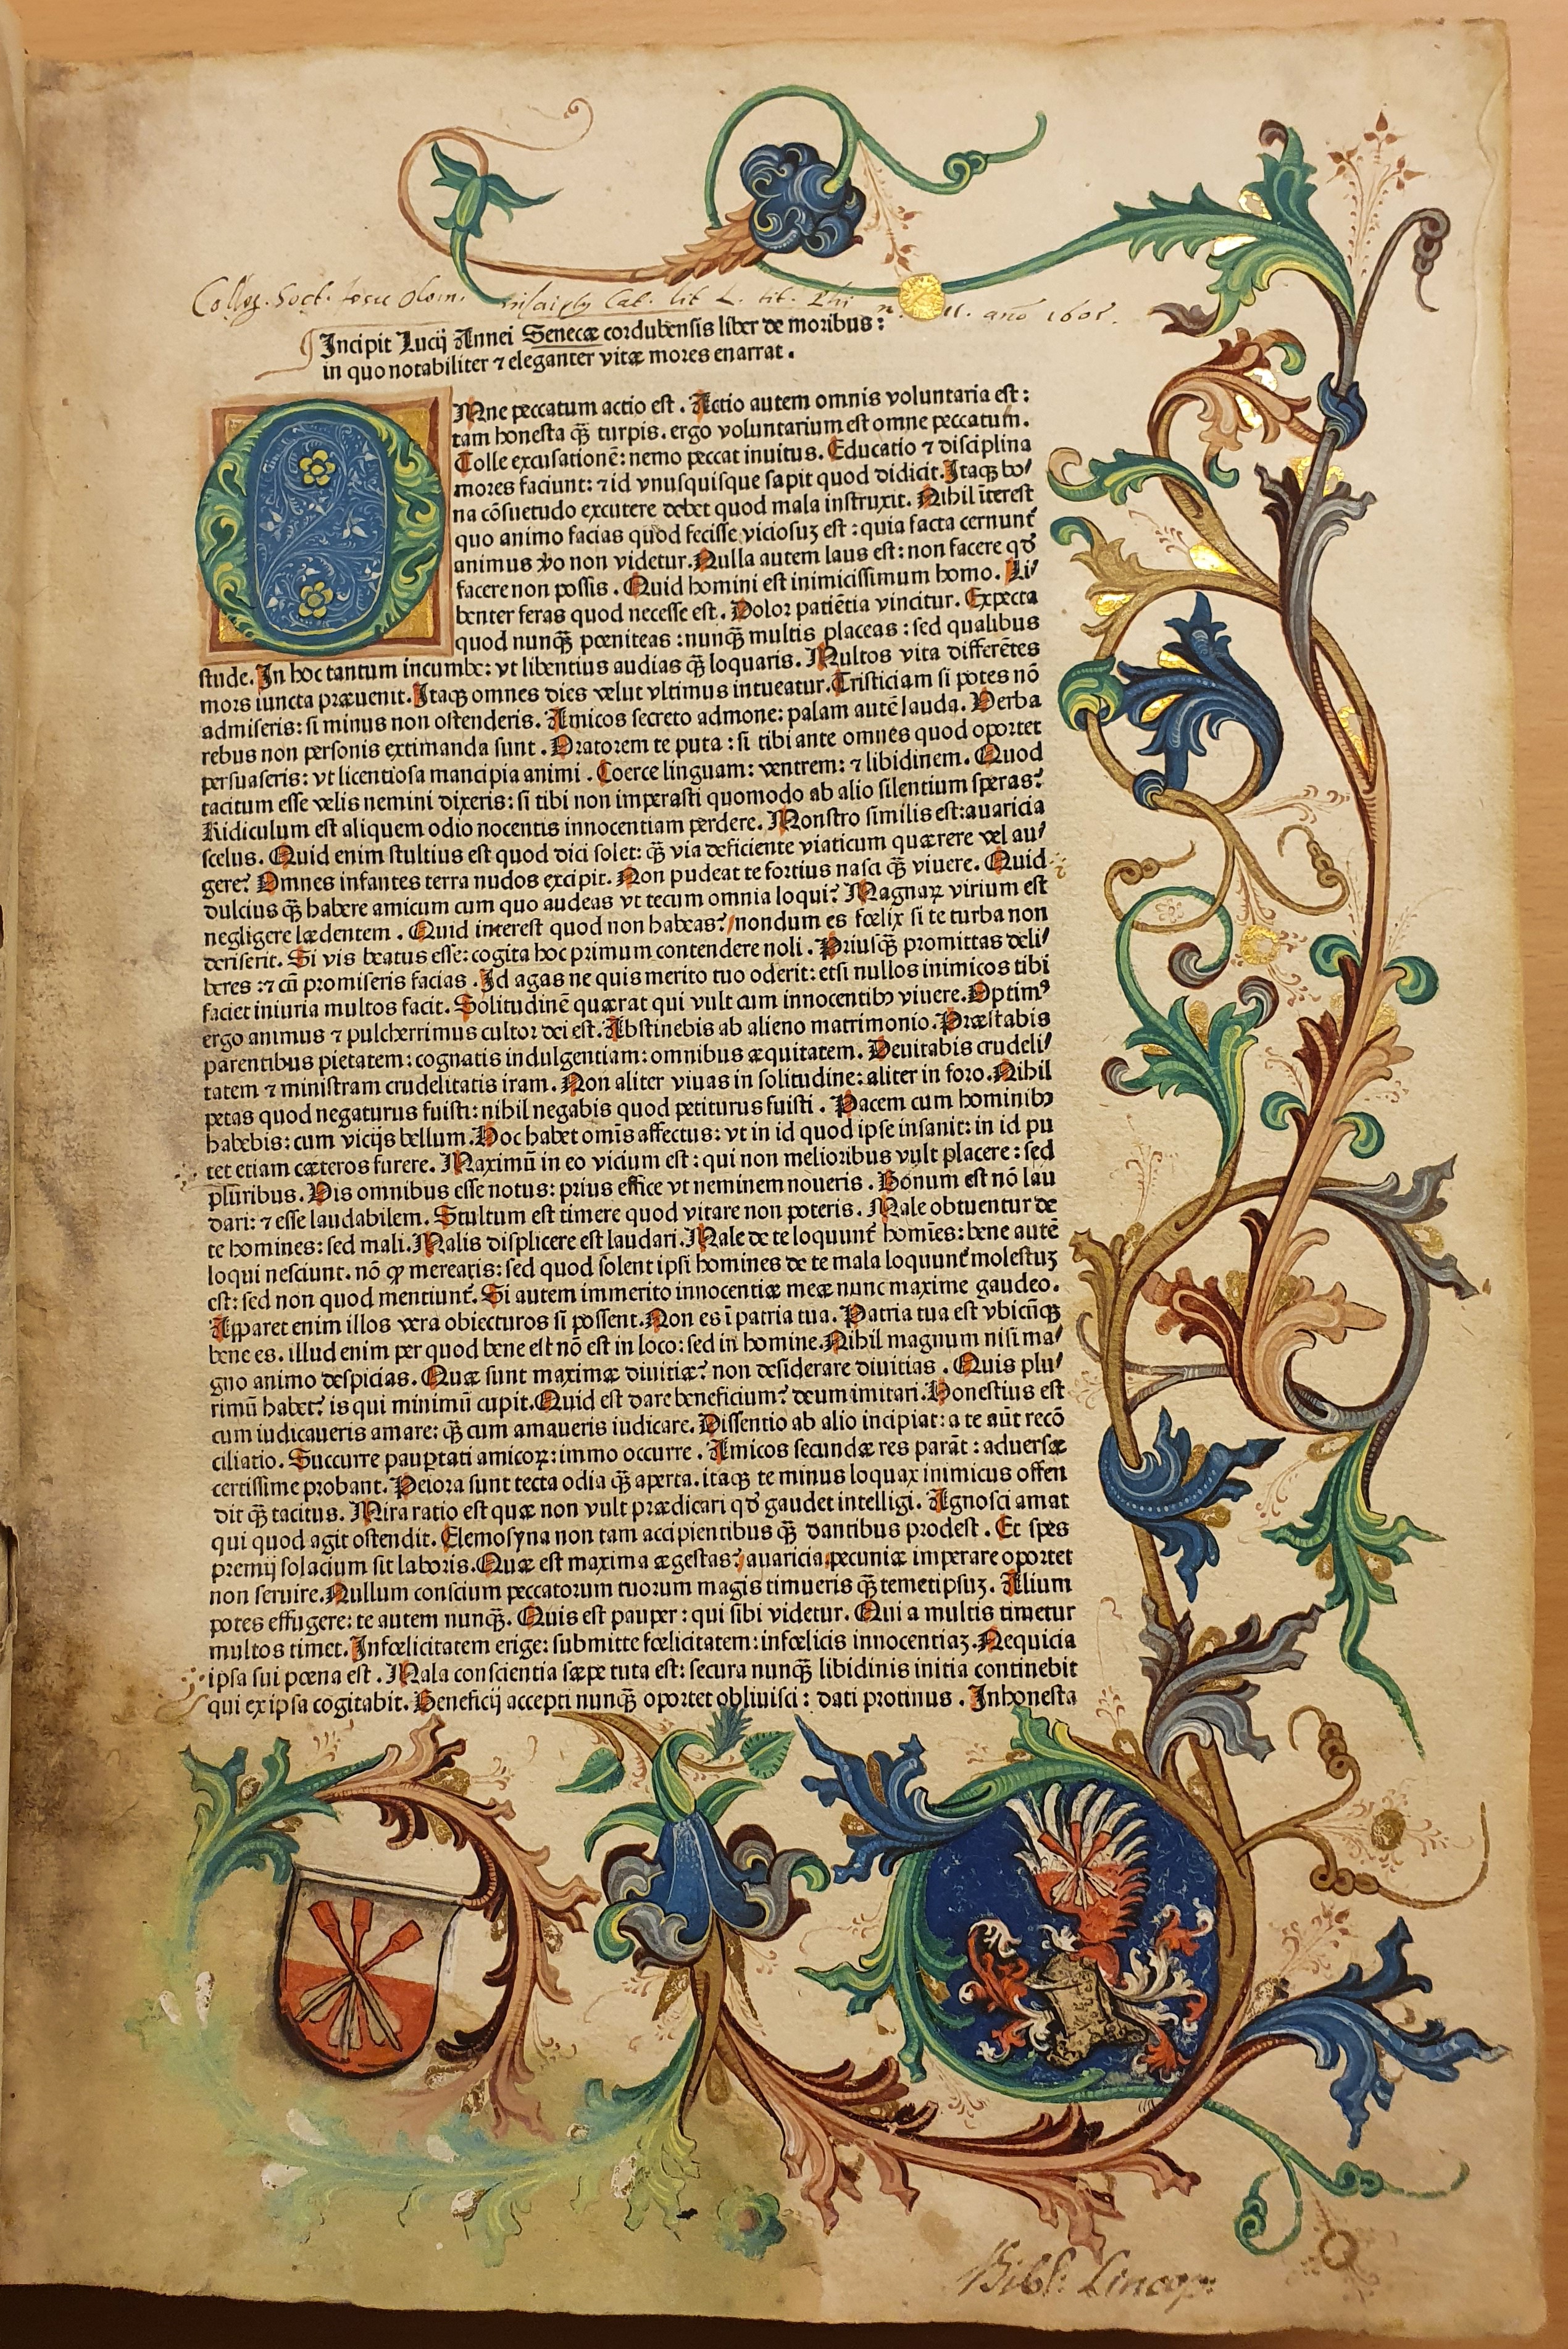 Colleg. Soct. Jesu Olom. inscriptg Cat. lit L. tit. Phi n. 11. ano 1605.
¶ Incipit Lucij Annei Senecæ cordubensis liber de moribus:
in quo notabiliter ⁊ eleganter vitæ mores enarrat.
OMne peccatum actio est. Actio autem omnis voluntaria est:
tam honesta q̃ꝫ turpis. ergo voluntarium est omne peccatum.
Tolle excusationē: nemo peccat inuitus. Educatio ⁊ disciplina
mores faciunt: ⁊ id vnusquisque sapit quod didicit. Itaqꝫ bo/
na cōsuetudo excutere debet quod mala instruxit. Nihil īterest
quo animo facias quod fecisse viciosuꝫ est: quia facta cernunt᷑
animus ꝟo non videtur. Nulla autem laus est: non facere qđ
facere non possis. Quid homini est inimicissimum homo. Li/
benter feras quod necesse est. Dolor patiētia vincitur. Expecta
quod nunq̃ꝫ pœniteas: nunq̃ꝫ multis placeas: sed qualibus
stude. In hoc tantum incumbe: vt libentius audias q̃ꝫ loquaris. Multos vita differētes
mors iuncta præuenit. Itaqꝫ omnes dies velut vltimus intueatur. Tristiciam si potes nō
admiseris: si minus non ostenderis. Amicos secreto admone: palam autē lauda. Verba
rebus non personis extimanda sunt. Oratorem te puta: si tibi ante omnes quod oportet
persuaseris: vt licentiosa mancipia animi. Coerce linguam: ventrem: ⁊ libidinem. Quod
tacitum esse velis nemini dixeris: si tibi non imperasti quomodo ab alio silentium speras?
Ridiculum est aliquem odio nocentis innocentiam perdere. Monstro similis est: auaricia
scelus. Quid enim stultius est quod dici solet: q̃ꝫ via deficiente viaticum quærere vel au/
gere? Omnes infantes terra nudos excipit. Non pudeat te fortius nasci q̃ꝫ viuere. Quid
dulcius q̃ꝫ habere amicum cum quo audeas vt tecum omnia loqui? Magnaꝝ virium est
negligere lædentem. Quid interest quod non habeas? nondum es fœlix si te turba non
deriserit. Si vis beatus esse: cogita hoc primum contendere noli. Priusq̃ꝫ promittas deli/
beres: ⁊ cū promiseris facias. Id agas ne quis merito tuo oderit: etsi nullos inimicos tibi
faciet iniuria multos facit. Solitudinē quærat qui vult cum innocentibꝰ viuere. Optimꝰ
ergo animus ⁊ pulcherrimus cultor dei est. Abstinebis ab alieno matrimonio. Præstabis
parentibus pietatem: cognatis indulgentiam: omnibus æquitatem. Deuitabis crudeli/
tatem ⁊ ministram crudelitatis iram. Non aliter viuas in solitudine: aliter in foro. Nihil
petas quod negaturus fuisti: nihil negabis quod petiturus fuisti. Pacem cum hominibꝰ
habebis: cum vicijs bellum. Hoc habet omīs affectus: vt in id quod ipse insanit: in id pu
tet etiam cæteros furere. Maximū in eo vicium est: qui non melioribus vult placere: sed
pluribus. Vis omnibus esse notus: prius effice vt neminem noueris. Bonum est nō lau
dari: ⁊ esse laudabilem. Stultum est timere quod vitare non poteris. Male obtuentur de
te homines: sed mali. Malis displicere est laudari. Male de te loquunt᷑ homīes: bene autē
loqui nesciunt. nō ꝙ merearis: sed quod solent ipsi homines de te mala loquunt᷑ molestuꝫ
est: sed non quod mentiunt᷑. Si autem immerito innocentiæ meæ nunc maxime gaudeo.
Apparet enim illos vera obiecturos si possent. Non es ī patria tua. Patria tua est vbicūqꝫ
bene es. illud enim per quod bene est nō est in loco: sed in homine. Nihil magnum nisi ma/
gno animo despicias. Quæ sunt maximæ diuitiæ? non desiderare diuitias. Quis plu/
rimū habet? is qui minimū cupit. Quid est dare beneficium? deum imitari. Honestius est
cum iudicaueris amare: q̃ꝫ cum amaueris iudicare. Dissentio ab alio incipiat: a te aūt recō
ciliatio. Succurre pauꝑtati amicoꝝ: immo occurre. Amicos secundæ res parāt: aduersæ
certissime probant. Peiora sunt tecta odia q̃ꝫ aperta. itaqꝫ te minus loquax inimicus offen
dit q̃ꝫ tacitus. Mira ratio est quæ non vult prædicari qđ gaudet intelligi. Agnosci amat
qui quod agit ostendit. Elemosyna non tam accipientibus q̃ꝫ dantibus prodest. Et spes
premij solacium sit laboris. Quæ est maxima ægestas? auaricia. pecuniæ imperare oportet
non seruire. Nullum conscium peccatorum tuorum magis timueris q̃ꝫ temetipsuꝫ. Alium
potes effugere: te autem nunq̃ꝫ. Quis est pauper: qui sibi videtur. Qui a multis timetur
multos timet. Infœlicitatem erige: submitte fœlicitatem: infœlicis innocentiaꝫ. Nequicia
ipsa sui pœna est. Mala conscientia sæpe tuta est: secura nunq̃ꝫ libidinis initia continebit
qui ex ipsa cogitabit. Beneficij accepti nunq̃ꝫ oportet obliuisci: dati protinus. Inhonesta
Bibl: Lincop: